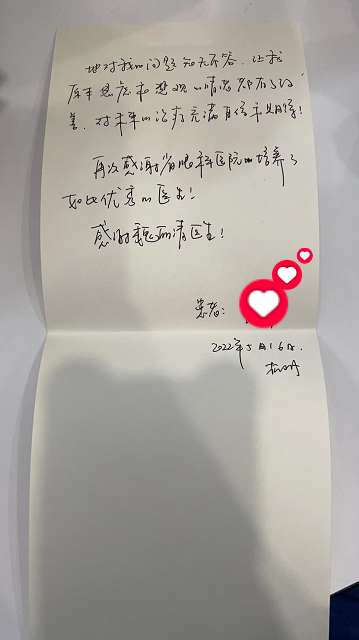 她对我的问题知无不答,让我
原本焦虑和悲观的情志都有了改
善,对未来的治疗充满自信和期待!
再次感谢省眼科医院的培养了
如此优秀的医生!
感谢魏丽清医生!
患者:
2022年5月16日.